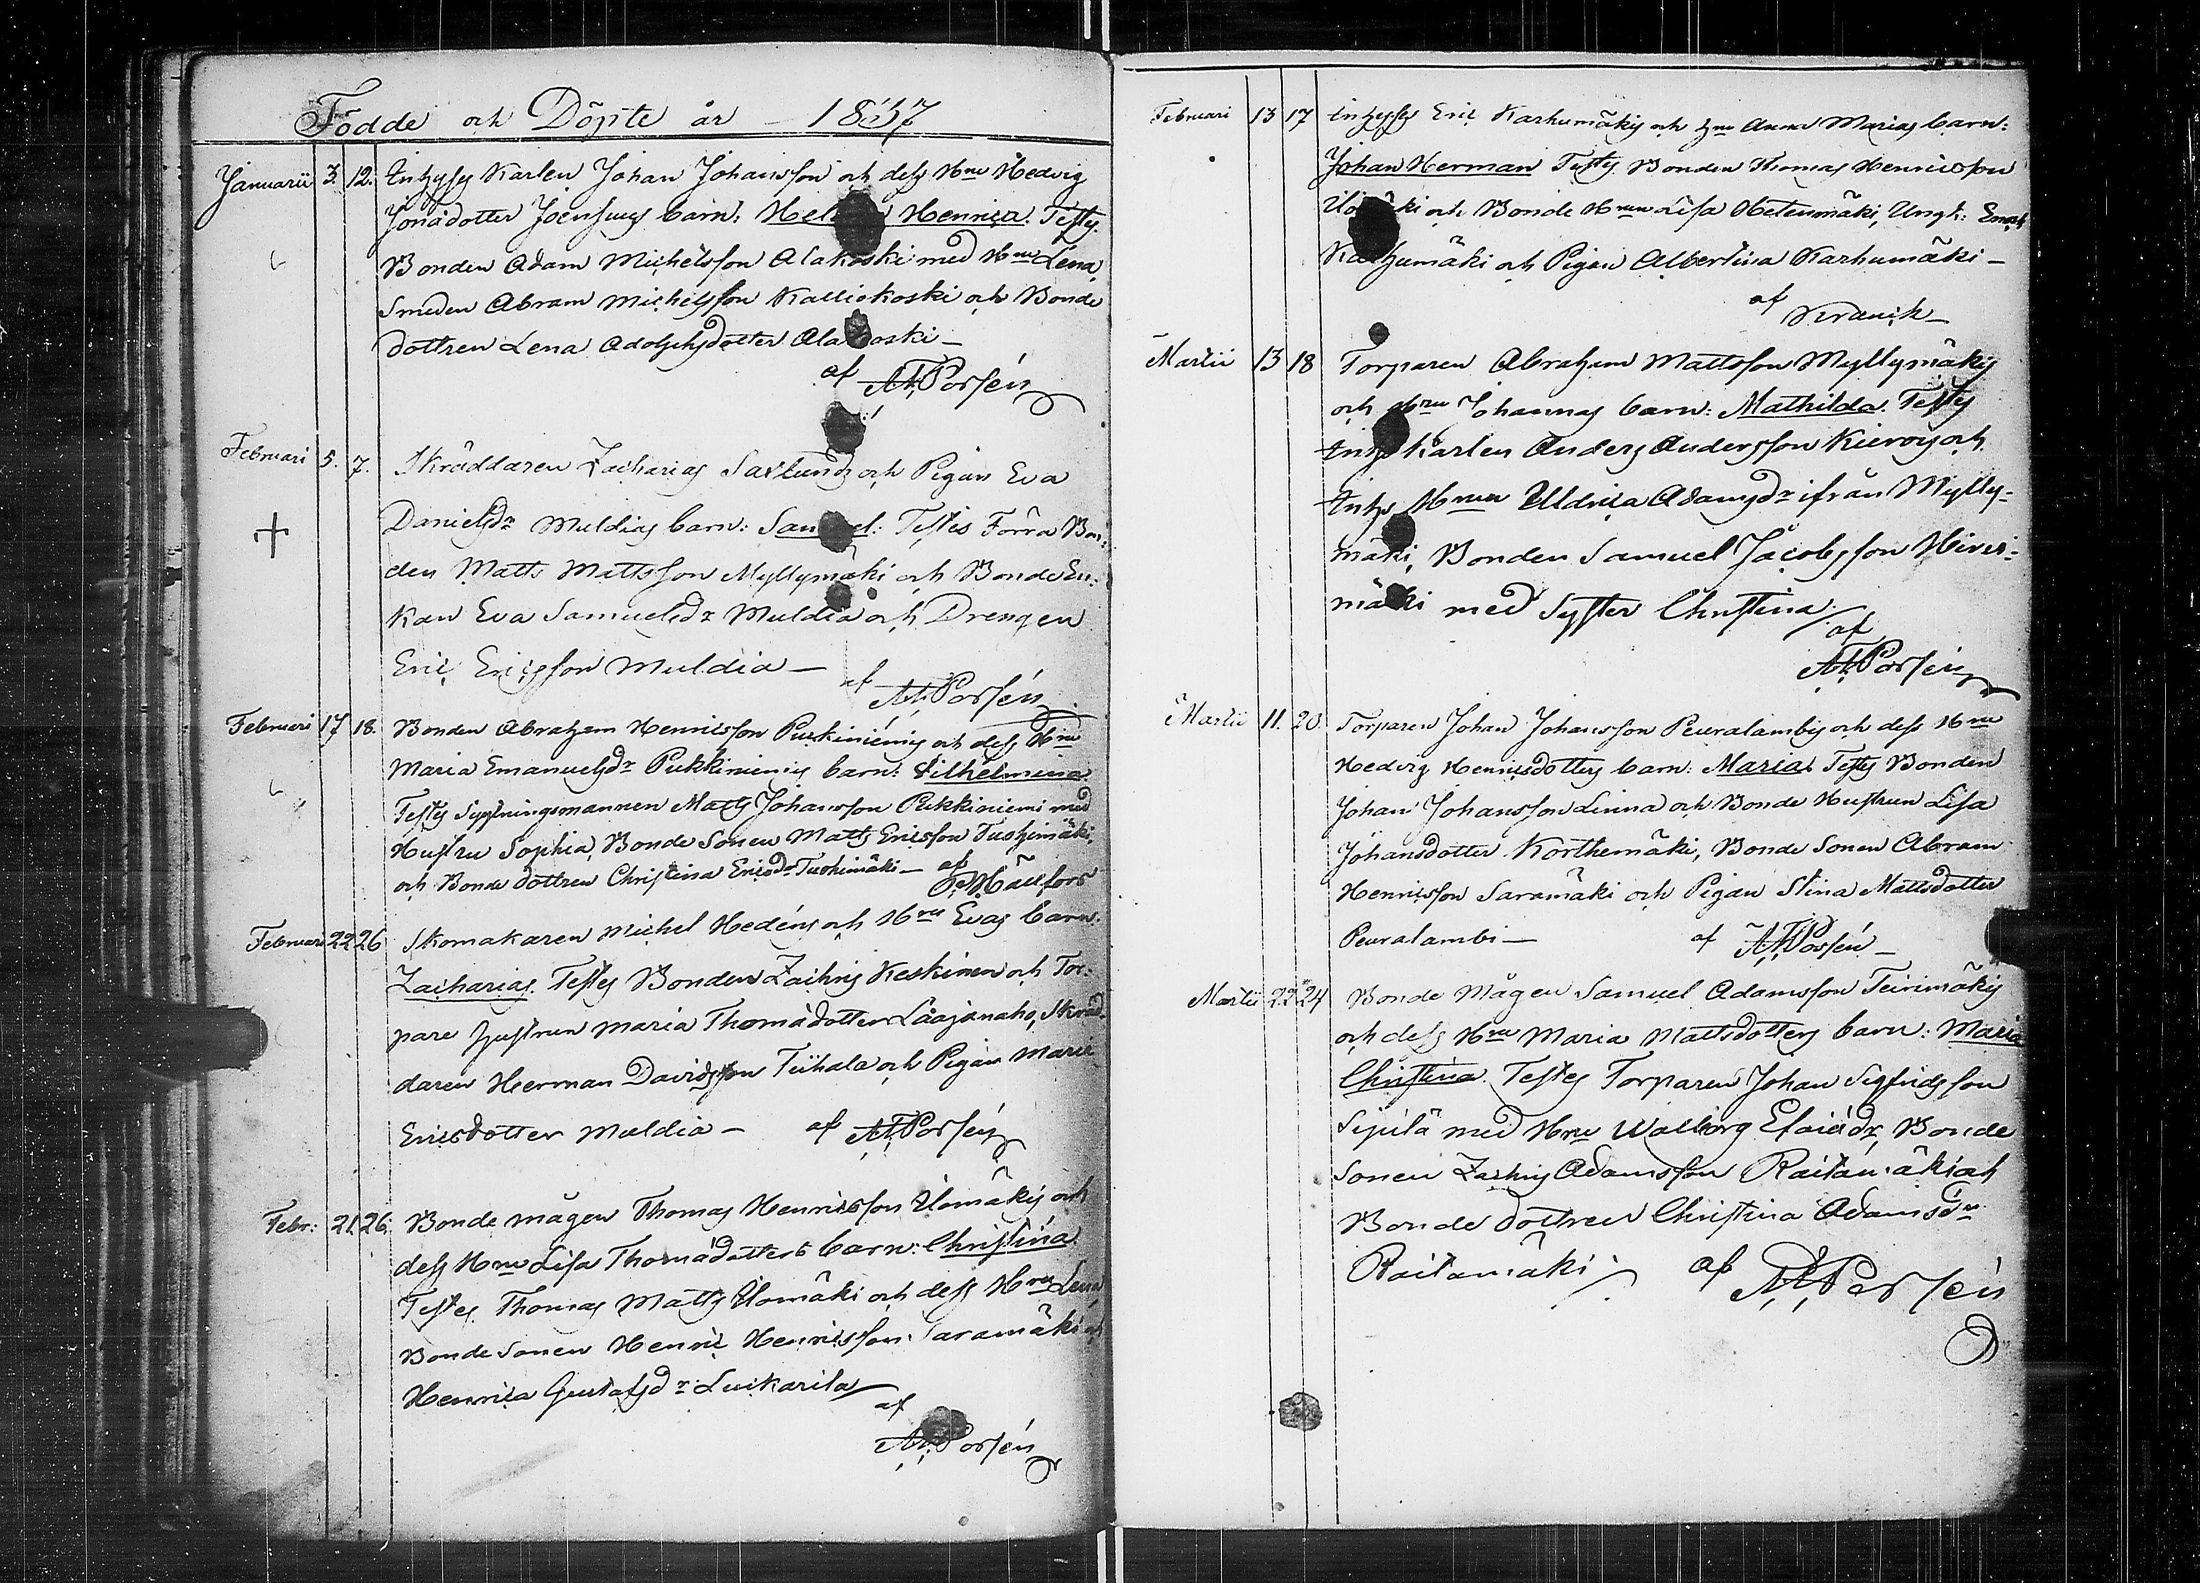 Födde och Döpte år 1837
Januarii 3. 12. Inhyses Karlen Johan Johansson och dess Hru Hedvig
Jonædotter Joensuus barn: Henrica. Testes
Bonden Adam Michelsson Alakoski med Hru Lena
Smeden Abram Michelsson Kalliokoski och Bonde
dottren Lena Adolphsdotter Alakoski —
af A.H. Porsén
Februari 5. 7. Skräddaren Zacharias och Pigan Eva
Danielsdr Muldias barn: Samuel: Testes Förra Bon-
den Matts Mattsson Myllymäki och Bonde En-
kan Eva Samuelsdr Muldia och Drengen
Eric Ericsson Muldia —
af A.H. Porsén
Februari 17 18. Bonden Abraham Henricsson och dess Hru
Maria Emanuelsdr Pukkiniemis barn: Vilhelmina
Testes Sytningsmannen Matts Johansson Pukkiniemi med
Hustru Sophia, Bonde Sonen Matts Ericsson Tuohimäki,
och Bonde dottren Christina Ericsdr Tuohimäki — af
Februari 22 26 Skomakaren Michel Hedéns och Hrus Evas barn:
Zacharias. Testes Bonden Zachris Keskinen och Tor-
pare hustrun Maria Thomædotter Laajanaho, Skräd-
daren Herman Davidsson Tiihala och Pigan Maria
Ericsdotter Muldia — af A.H. Porsén
Febr: 21. 26. Bonde mågen Thomas Henricsson Ilomäkis och
dess Hru Lisa Thomædotters barn: Christina.
Testes. Thomas Matts Ilomäki och dess Hru Lena
Bonde Sonen Henric Henricsson Saramäki och
Henrica Gustafsdr Luikarila
af
A.H. Porsén
Februari 13 17 Inhyses Eric Karhumäkis och hru Anna Marias barn:
Johan Herman Testes Bonden Thomas Henricsson
och Bonde Hrun Lisa Hetemäki, Ungk:
Karhumäki och Pigan Albertina Karhumäki —
af
Kranck —
Martii 13 18 Torparen Abraham Mattsson Myllymäkis
och Hru Johannas barn: Mathilda. Testes
Inhs Karlen Anders Andersson och
Inhs Hrun Uldrica Adamsdr ifrån Mylly-
mäki, Bonden Samuel Jacobsson Hirvi-
mäki med Syster Christina.
af
A.H. Porsén
Martii 11. 20. Torparen Johan Johansson Peuralambis och dess Hru
Hedvig Henricsdotters barn: Maria. Testes Bonden
Johan Johansson Linna och Bonde Hustrun Lisa
Johansdotter Korthemäki, Bonde Sonen Abram
Henricsson Saramäki och Pigan Stina Mattsdotter
Peuralambi — af A.H. Porsén —
Martii 22 24 Bonde Mågen Samuel Adamsson Teirimäkis
och dess Hru Maria Mattsdotters barn: Maria
Christina. Testes Torparen Johan Sigfridsson
Sipilä med Hru Walborg Esaiædr, Bonde
Sonen Zachris Adamsson Raitamäki och
Bonde dottren Christina Adamsdr
Raitamäki. af A.H. Porsén